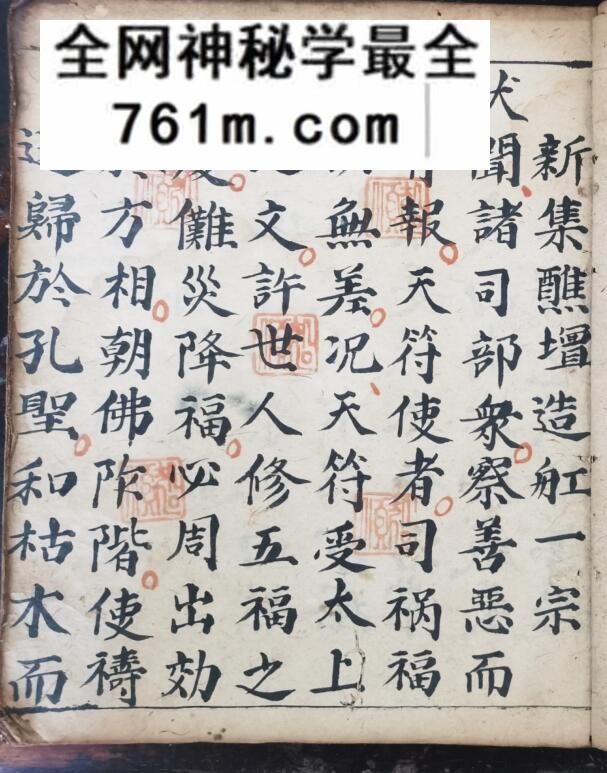 全网神秘学最全
761m.com
新集醮壇造舡一宗
聞諸司部衆察善惡而
報天符使者司祸福
無差况天符受太上
文許世人修五福之
儺災降福必周出効
方相朝佛阼階使禱
歸於孔聖和枯木而